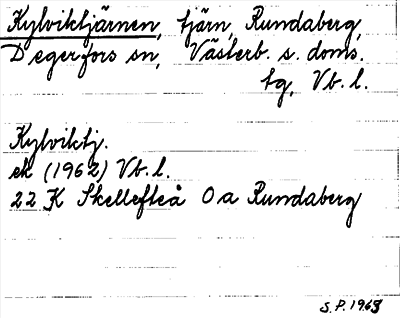 Kylviktjärnen, tjärn, Rundaberg,
Degerfors sn, Västerb. s. doms.
tg, Vb. l.
Kylviktj.
ek (1962) Vb. l.
22 K Skellefteå 0 a Rundaberg
S.P. 1963